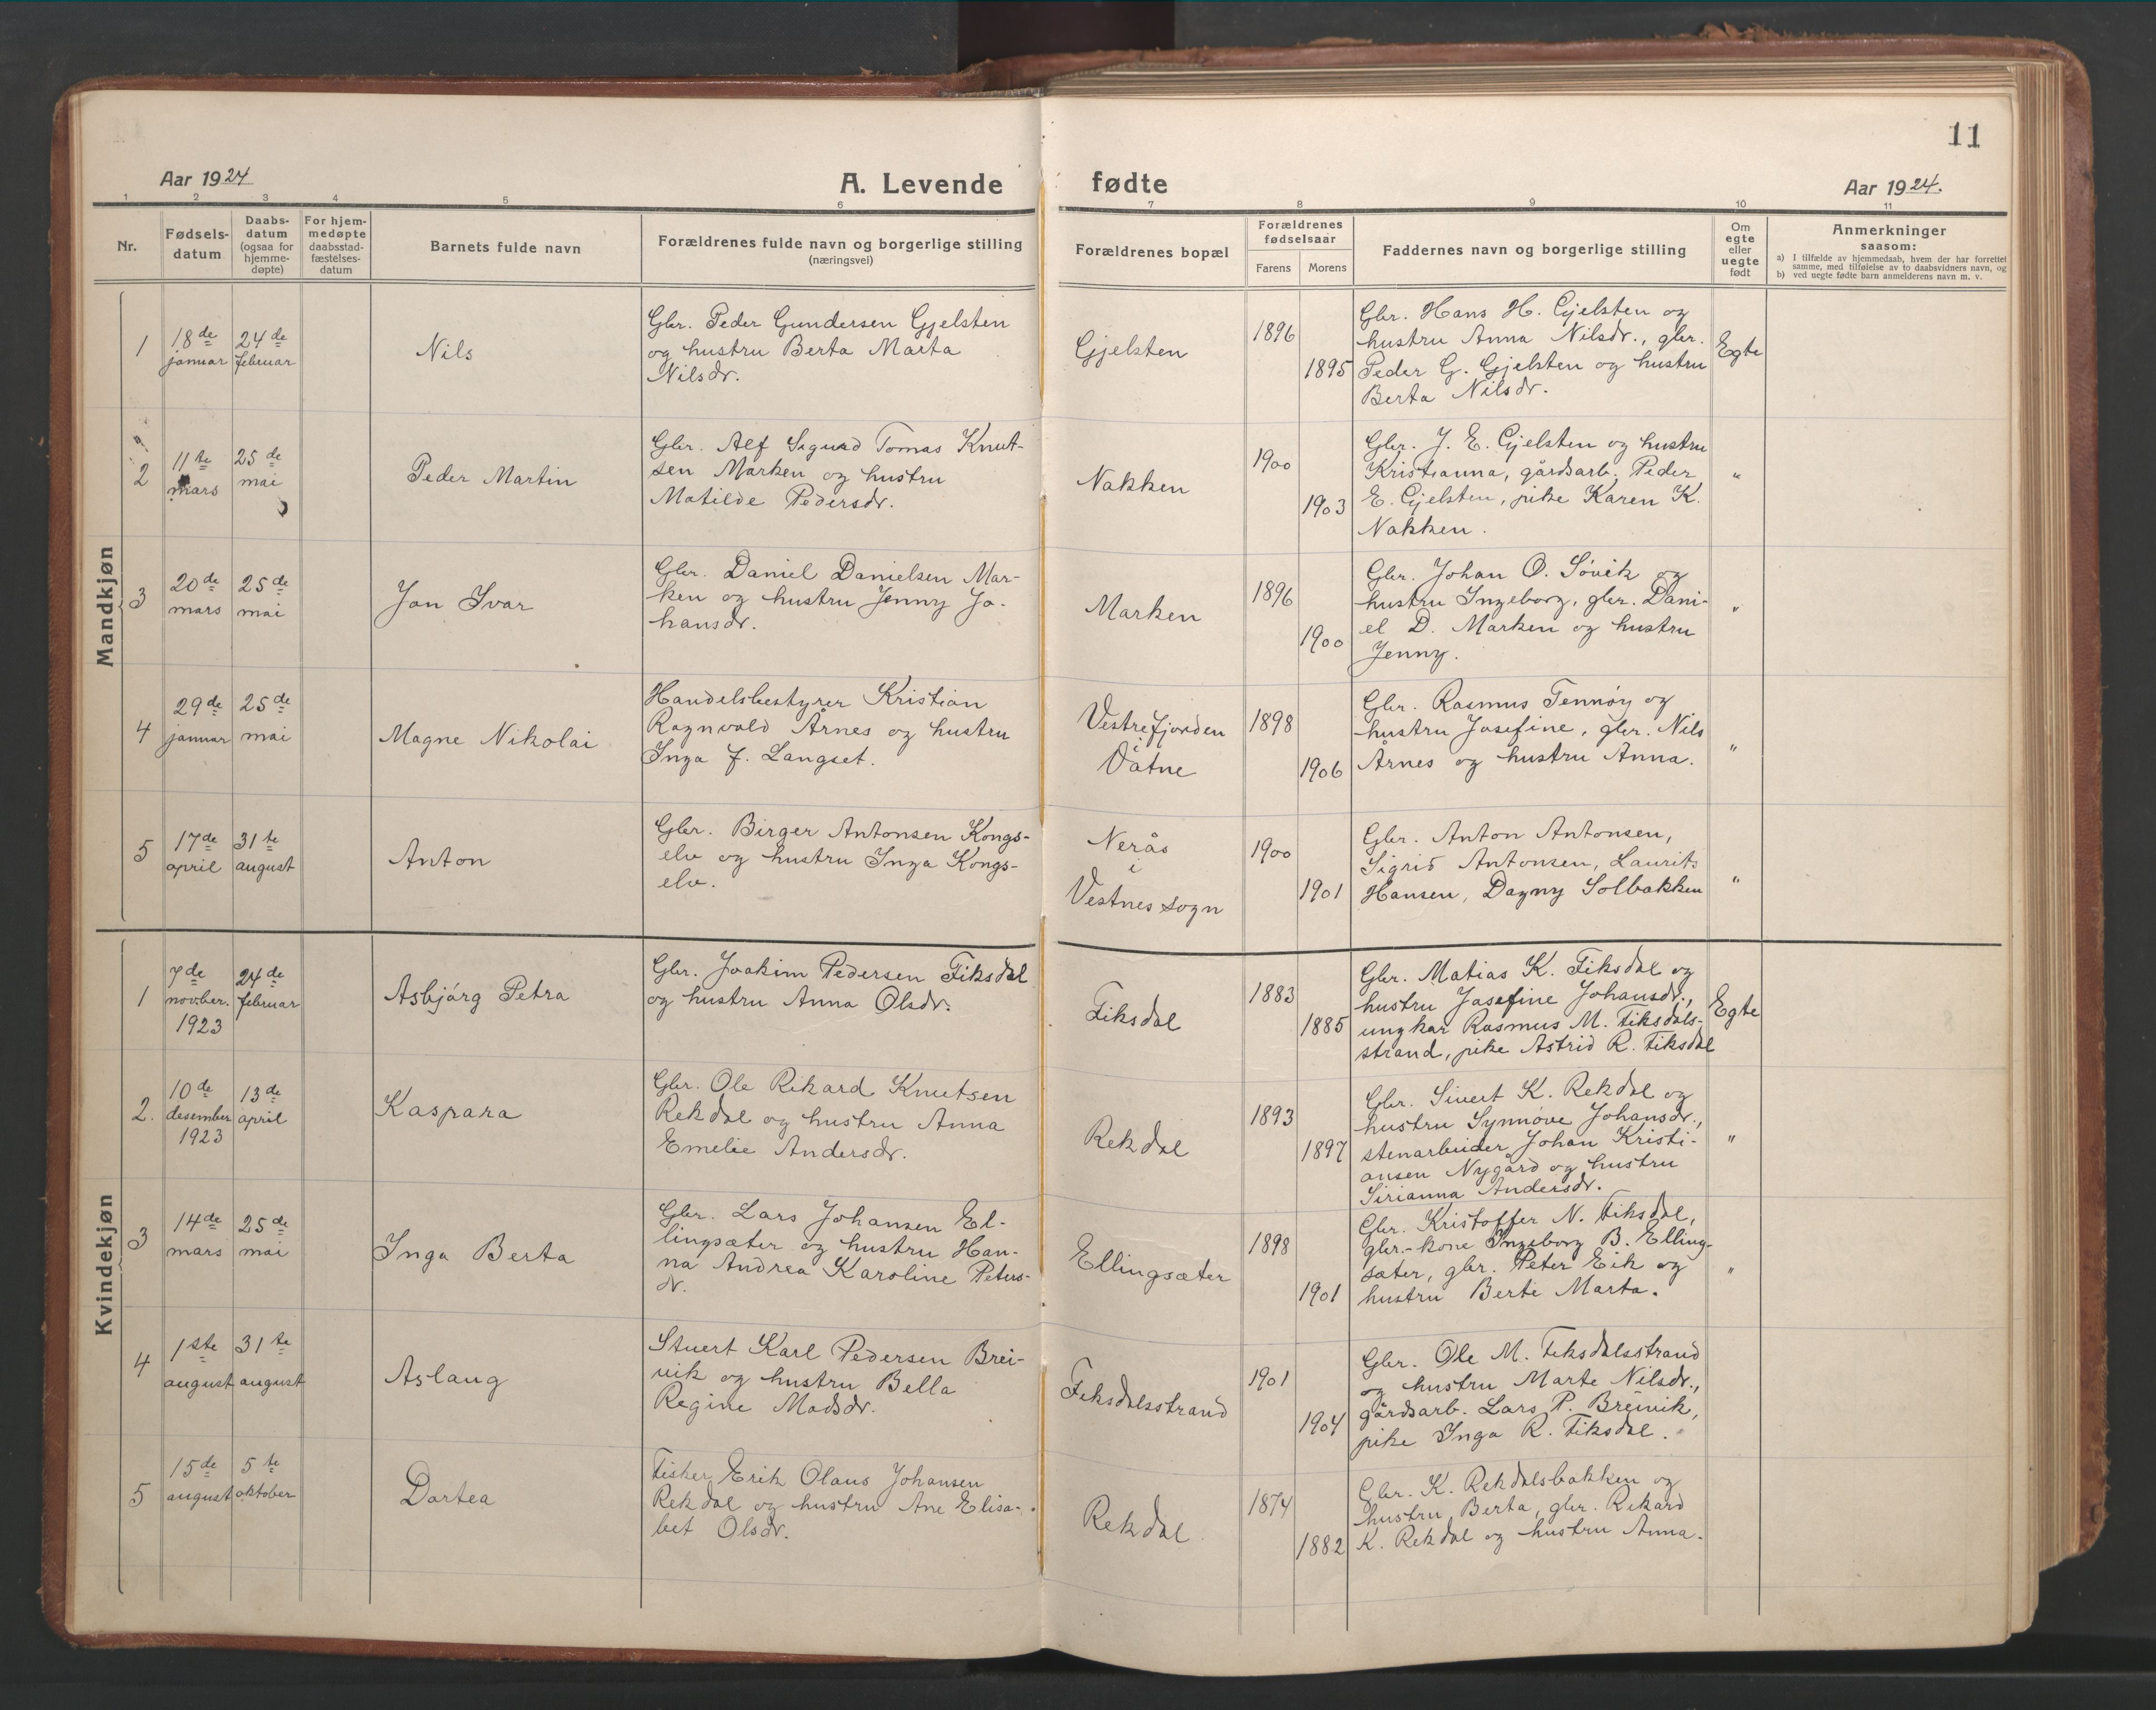 11
Aar 1924
A. Levende
fødte
Aar 1924.
1 2 3 4 5 6 7 8 9 10 11
Nr.
Fødsels-
datum
Daabs-
datum
(ogsaa for
hjemme-
døpte)
For hjem-
medøpte
daabsstad-
fæstelses-
datum
Barnets fulde navn
Forældrenes fulde navn og borgerlige stilling
(næringsvei)
Forældrenes bopæl
Forældrenes
fødselsaar
Farens Morens
Faddernes navn og borgerlige stilling
Om
egte
eller
uegte
født
Anmerkninger
saasom:
a) I tilfælde av hjemmedaab, hvem der har forrettet
samme, med tilføielse av to daabsvidners navn, og
b) ved uegte fødte barn anmelderens navn m. v.
Mandkjøn
1
18de
januar
24de
februar
Nils
Gbr. Peder Gundersen Gjelsten
og hustru Berta Marta
Nilsdr.
Gjelsten
1896
1895
Gbr. Hans H. Gjelsten og
hustru Anna Nilsdr., gbr.
Peder G. Gjelsten og hustru
Berta Nilsdr.
Egte
2
11te
mars
25de
mai
Peder Martin
Gbr. Alf Sigurd Tomas Knut-
sen Marken og hustru
Matilde Pedersdr.
Nakken
1900
1903
Gbr. J. E. Gjelsten og hustru
Kristianna, gårdsarb. Peder
E. Gjelsten, pike Karen K.
Nakken.
"
3
20de
mars
25de
mai
Jon Ivar
Gbr. Daniel Danielsen Mar-
ken og hustru Jenny Jo-
hansdr.
Marken
1896
1900
Gbr. Johan O. Søvik og
hustru Ingeborg, gbr. Dani-
el D. Marken og hustru
Jenny.
"
4
29de
januar
25de
mai
Magne Nikolai
Handelsbestyrer Kristian
Ragnvald Årnes og hustru
Inga J. Langset.
Vestrefjorden
i
Vatne
1898
1906
Gbr. Rasmus Tennøy og
hustru Josefine, gbr. Nils
Årnes og hustru Anna.
"
5
17de
april
31te
august
Anton
Gbr. Birger Antonsen Kongs-
elv og hustru Inga Kongs-
elv.
Nerås
i
Vestnes sogn
1900
1901
Gbr. Anton Antonsen,
Sigrid Antonsen, Laurits
Hansen, Dagny Solbakken
"
Kvindekjøn
1
7de
novber.
1923
24de
februar
Asbjørg Petra
Gbr. Joakim Pedersen Fiksdal
og hustru Anna Olsdr.
Fiksdal
1883
1885
Gbr. Matias K. Fiksdal og
hustru Josefine Johansdr.,
ungkar Rasmus M. Fiksdals-
strand, pike Astrid R. Fiksdal
Egte
2.
10de
desember
1923
13de
april
Kaspara
Gbr. Ole Rikard Knutsen
Rekdal og hustru Anna
Emelie Andersdr.
Rekdal
1893
1897
Gbr. Sivert K. Rekdal og
hustru Synnøve Johansdr.,
stenarbeider Johan Kristi-
ansen Nygård og hustru
Sirianna Andersdr.
"
3
14de
mars
25de
mai
Inga Berta
Gbr. Lars Johansen El-
lingsæter og hustru Han-
na Andrea Karoline Peters-
dr.
Ellingsæter
1898
1901
Gbr. Kristoffer N. Fiksdal,
gbr.-kone Ingeborg B. Elling-
sæter, gbr. Peter Eik og
hustru Berte Marta.
"
4
1ste
august
31te
august
Aslaug
Stuert Karl Pedersen Brei-
vik og hustru Bella
Regine Madsdr.
Fiksdalsstrand
1901
1904
Gbr. Ole M. Fiksdalsstrand
og hustru Marte Nilsdr.,
gårdsarb. Lars P. Breivik,
pike Inga R. Fiksdal.
5
15de
august
5te
oktober
Dortea
Fisker Erik Olaus Johansen
Rekdal og hustru Ane Elisa-
bet Olsdr.
Rekdal
1874
1882
Gbr. K. Rekdalsbakken og
hustru Berta, gbr. Rikard
K. Rekdal og hustru Anna.